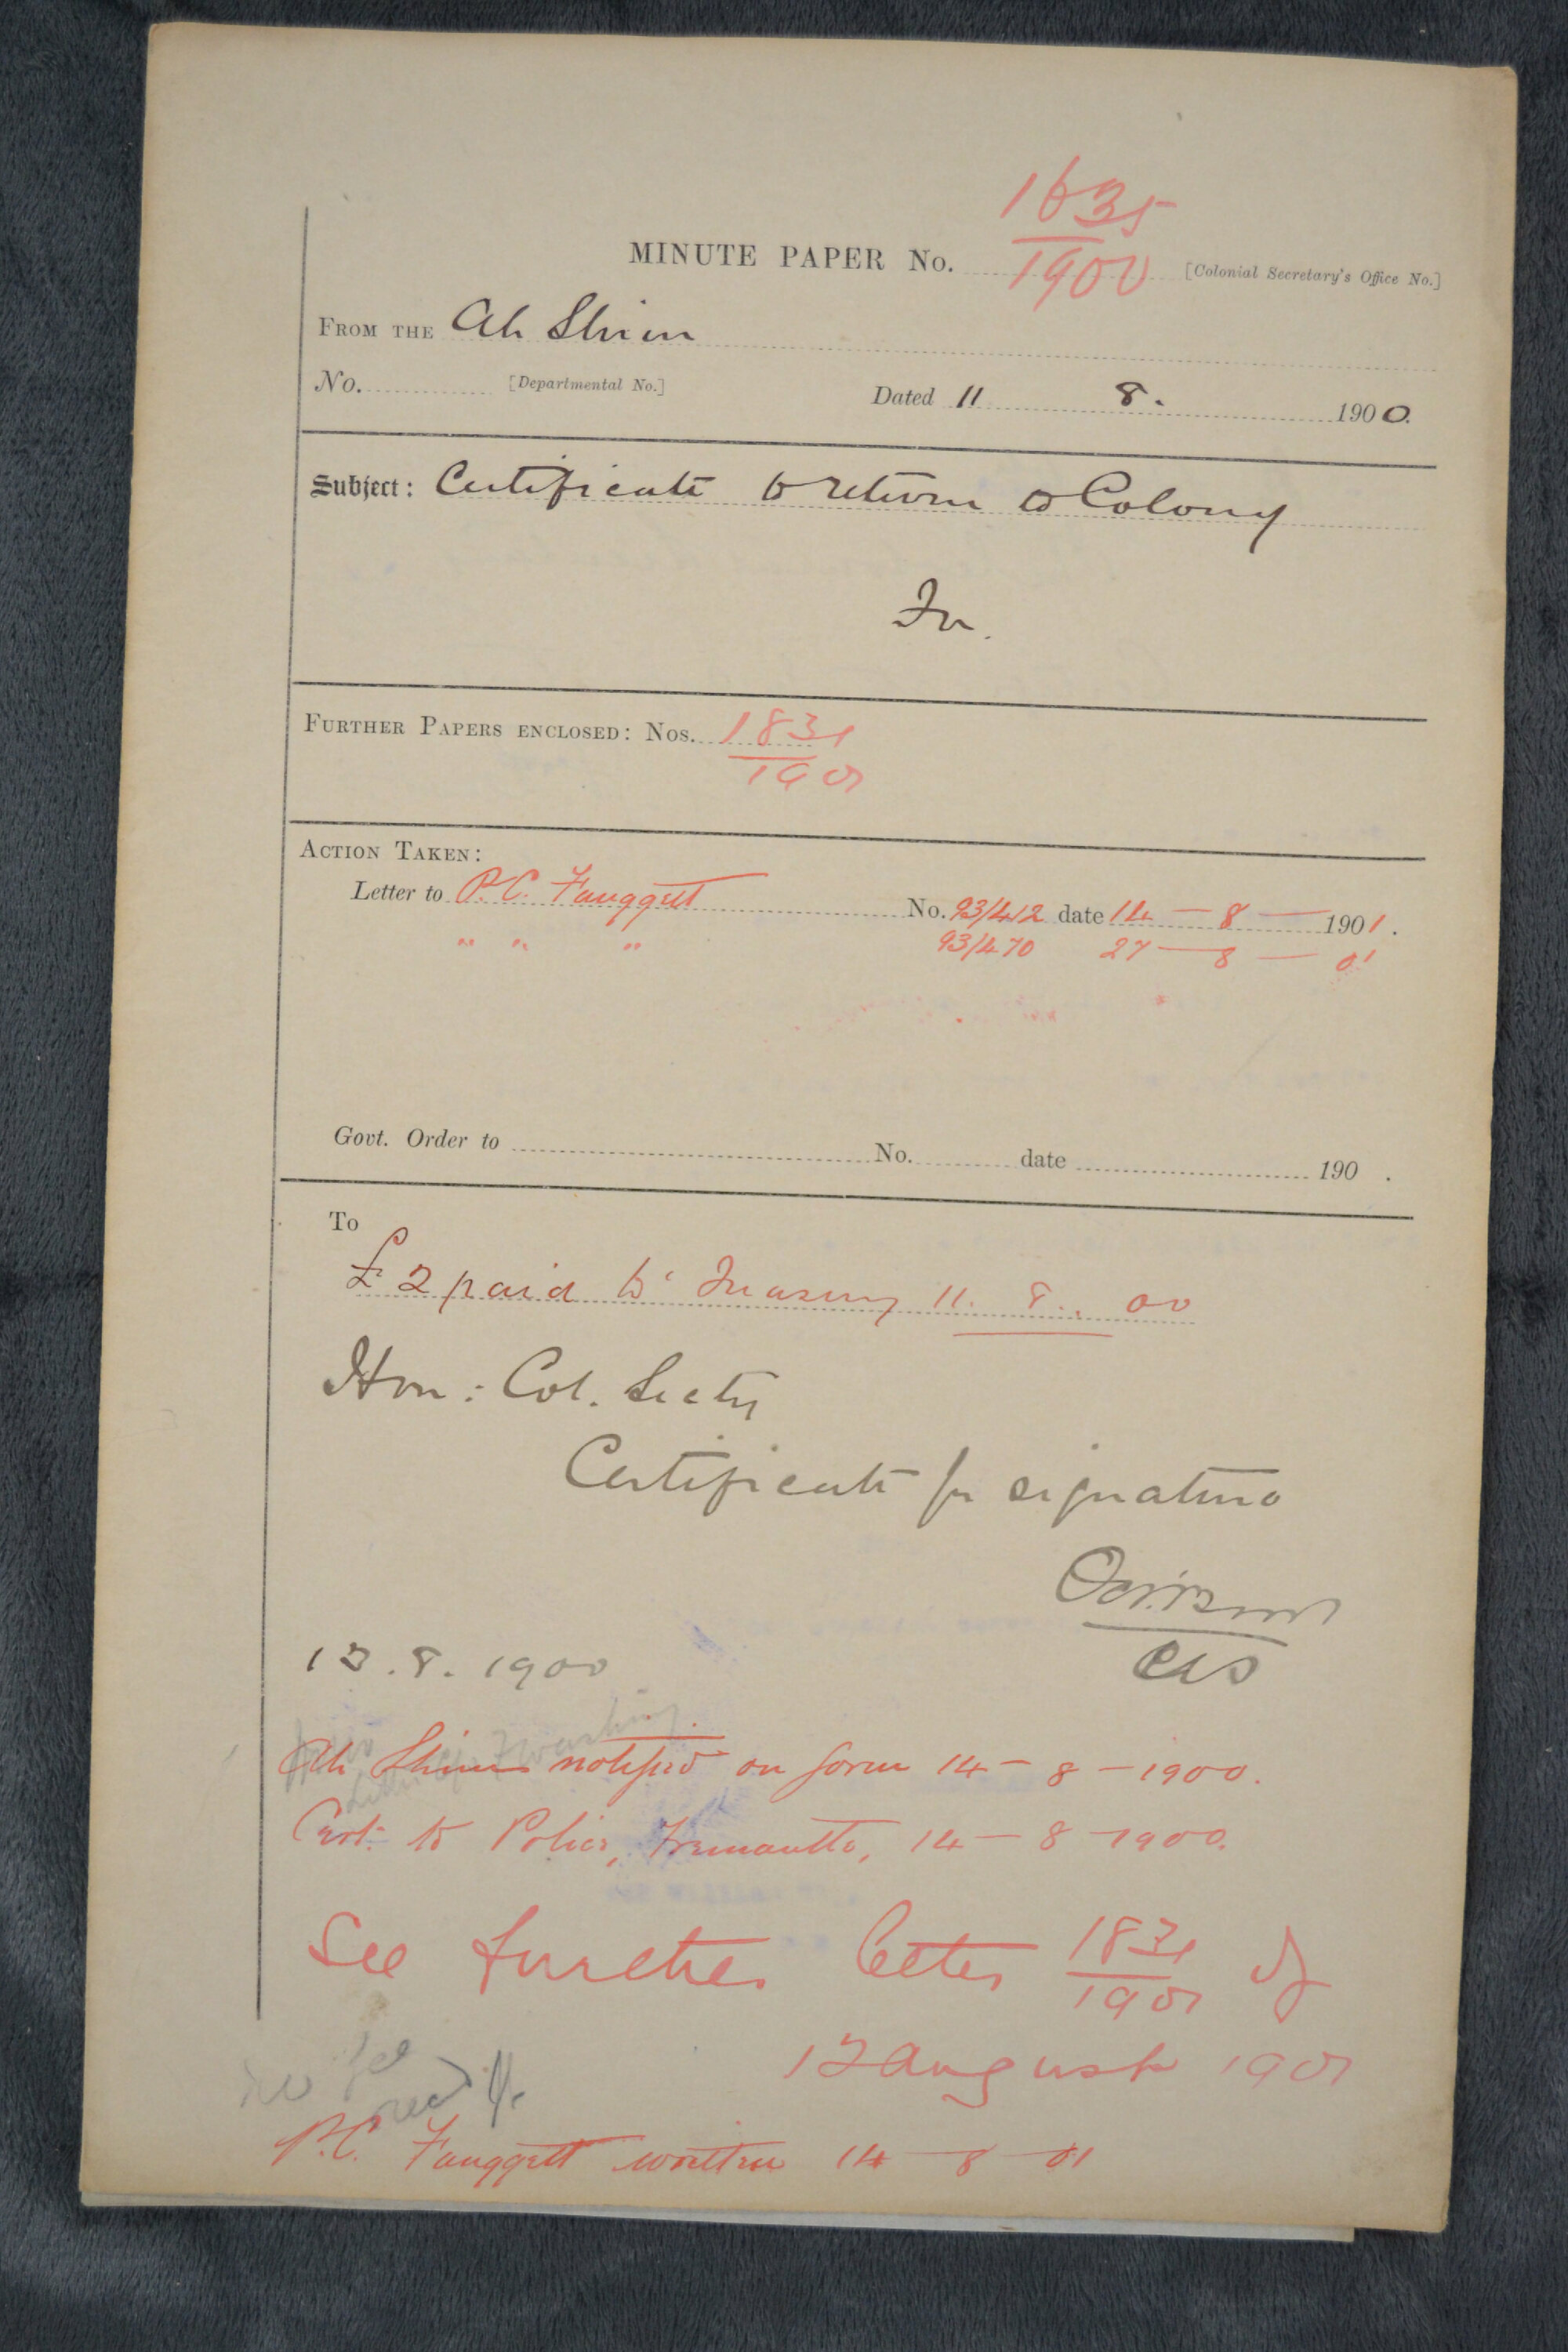 1635
1900
MINUTE PAPER No. [Colonial Secretary's Office No.]
FROM THE Ah Shim
No. [Departmental No.] Dated 11 8. 1900.
Subject: Certificate to return to Colony
FURTHER PAPERS ENCLOSED: Nos. 1831
1901
ACTION TAKEN:
Letter to P.C. Fauggett No. 93/412 date 14 — 8 — 1901.
" " " 93/470 27 — 8 — 01
Govt. Order to No. date 190 .
To
£2 paid to Treasury 11. 8. 00
Hon: Col. Secty
Certificate for signature
13.8.1900
Ah Shim notified on form 14 - 8 - 1900.
Cert: to Police, Fremantle, 14 - 8 - 1900.
See further letter 1831 of
1901
12 August 1901
P.C. Fauggett written 14 - 8 - 01